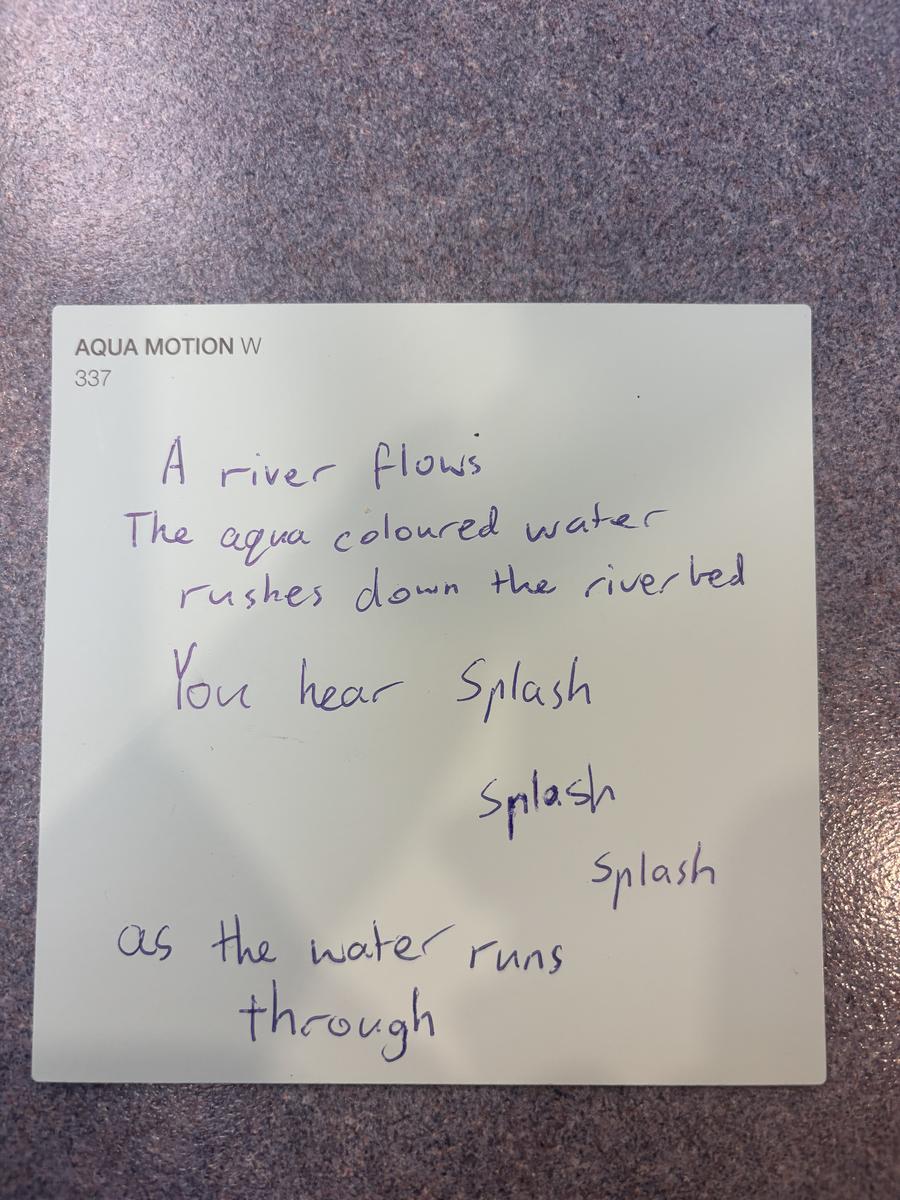 AQUA MOTION W
337
A river flows
The aqua coloured water
rushes down the riverbed
You hear Splash
Splash
Splash
as the water runs
through